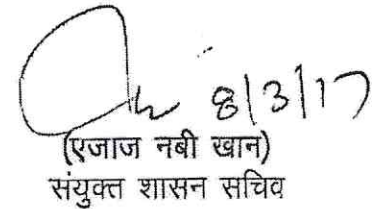 8/3/17
(एजाज नबी खान)
संयुक्त शासन सचिव